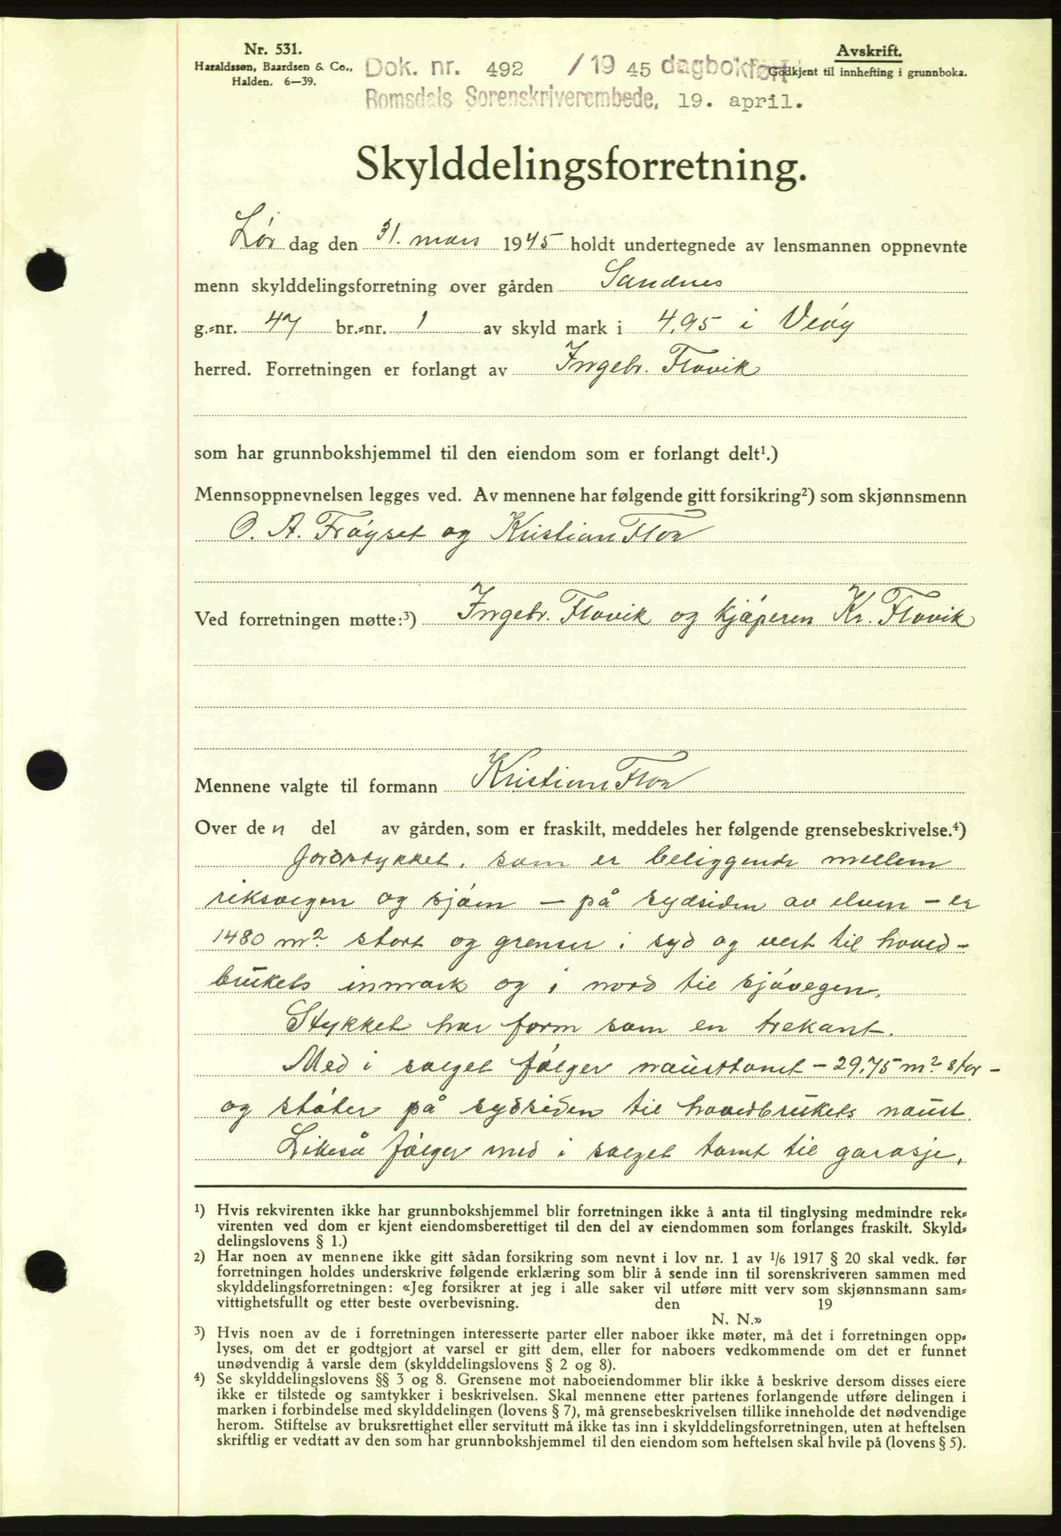 Nr. 531.
Haraldssøn, Baardsen & Co.,
Halden. 6—39.
Avskrift.
Godkjent til innhefting i grunnboka.
Dok. nr. 492 /19 45 dagbokført
Romsdals Sorenskriverembede, 19. april.
Skylddelingsforretning.
Lør dag den 31. mars 1945 holdt undertegnede av lensmannen oppnevnte
menn skylddelingsforretning over gården Sandnes
g.=nr. 47 br.=nr. 1 av skyld mark i 4,95 i Veøy
herred. Forretningen er forlangt av Ingebr. Flovik
som har grunnbokshjemmel til den eiendom som er forlangt delt¹.)
Mennsoppnevnelsen legges ved. Av mennene har følgende gitt forsikring²) som skjønnsmenn
O. A. Frøyset og Kristian Flor
Ved forretningen møtte:³) Ingebr. Flovik og kjøperen Kr. Flovik
Mennene valgte til formann Kristian Flor
Over den del av gården, som er fraskilt, meddeles her følgende grensebeskrivelse.⁴)
Jordstykket, som er beliggende mellem
riksvegen og sjøen — på sydsiden av elven — er
1480 m² stort og grenser i syd og vest til hoved-
brukets innmark og i nord til sjøvegen.
Stykket har form som en trekant.
Med i salget følger nausttomt — 29,75 m² stor —
og støter på sydsiden til hovedbrukets naust.
Likeså følger med i salget tomt til garasje,
¹) Hvis rekvirenten ikke har grunnbokshjemmel blir forretningen ikke å anta til tinglysing medmindre rek=
virenten ved dom er kjent eiendomsberettiget til den del av eiendommen som forlanges fraskilt. Skyld=
delingslovens § 1.)
²) Har noen av mennene ikke gitt sådan forsikring som nevnt i lov nr. 1 av 1/6 1917 § 20 skal vedk. før
forretningen holdes underskrive følgende erklæring som blir å sende inn til sorenskriveren sammen med
skylddelingsforretningen: «Jeg forsikrer at jeg i alle saker vil utføre mitt verv som skjønnsmann sam=
vittighetsfullt og etter beste overbevisning. den 19
N. N.»
³) Hvis noen av de i forretningen interesserte parter eller naboer ikke møter, må det i forretningen opp=
lyses, om det er godtgjort at varsel er gitt dem, eller for naboers vedkommende om det er funnet
unødvendig å varsle dem (skylddelingslovens § 2 og 8).
⁴) Se skylddelingslovens §§ 3 og 8. Grensene mot naboeiendommer blir ikke å beskrive dersom disses eiere
ikke er tilstede og samtykker i beskrivelsen. Skal mennene etter partenes forlangende utføre delingen i
marken i forbindelse med skylddelingen (lovens § 7), må grensebeskrivelsen tillike inneholde det nødvendige
herom. Stiftelse av bruksrettighet eller servitutt må ikke tas inn i skylddelingsforretningen, uten at heftelsen
skriftlig er vedtatt av den som har grunnbokshjemmel til den eiendom som heftelsen skal hvile på (lovens § 5).